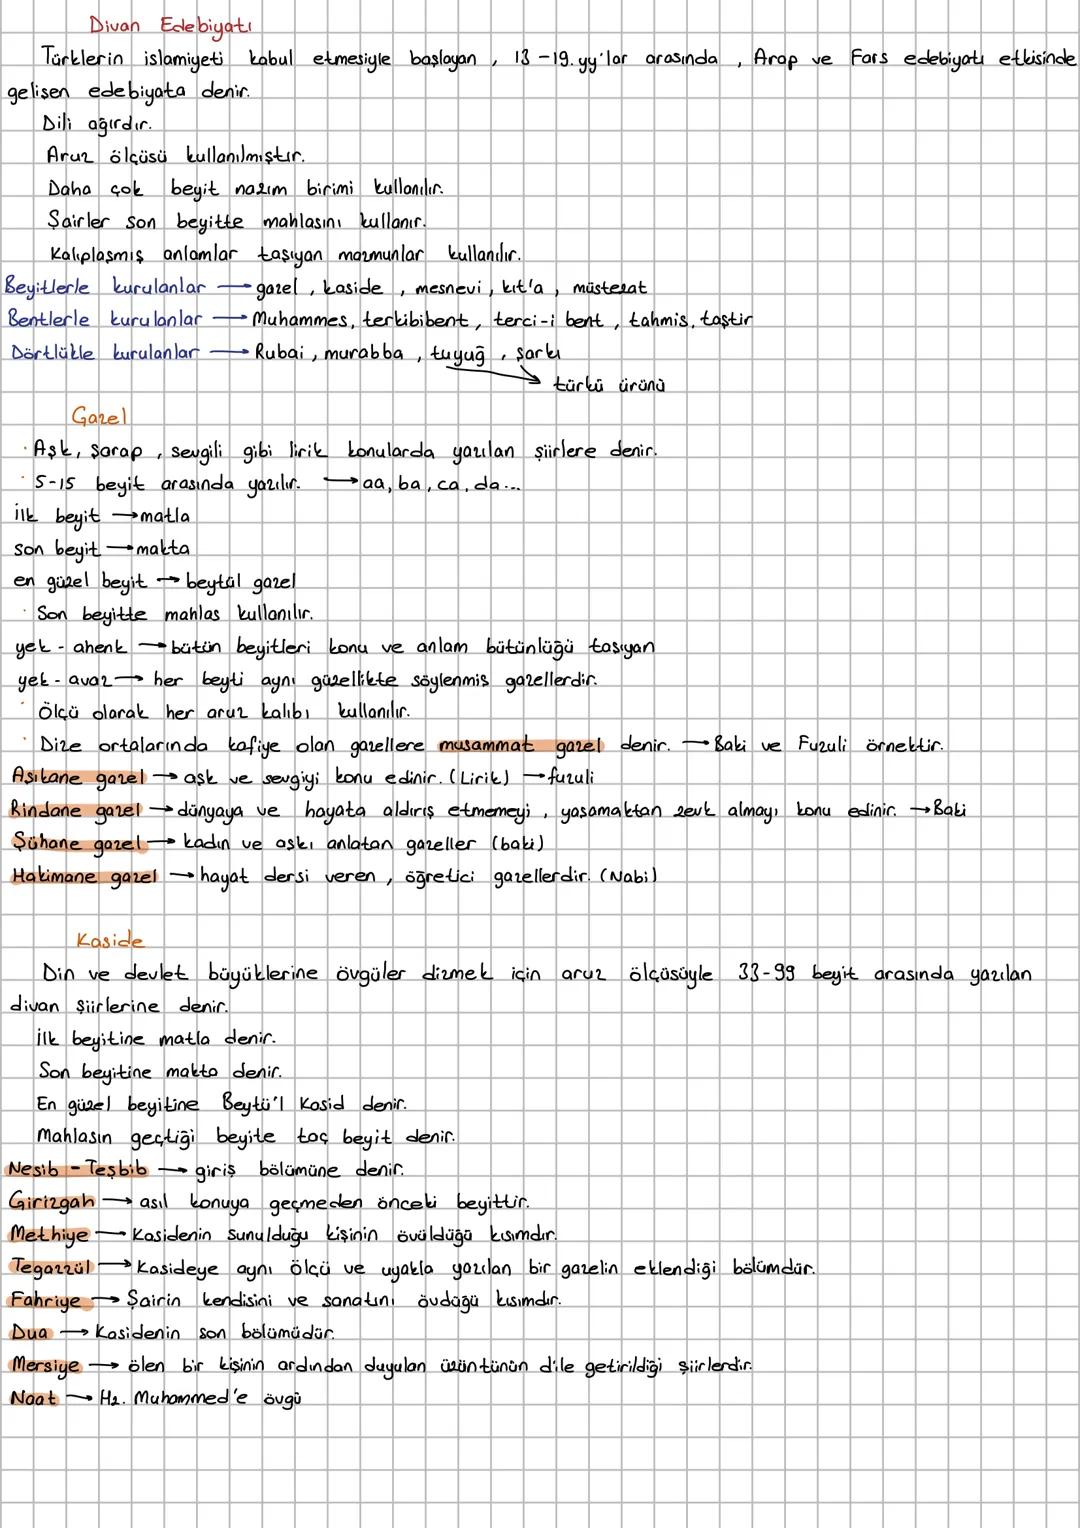 Divan Edebiyatı
Türklerin islamiyeti kabul etmesiyle başlayan , 13 -19. yy'lar arasında , Arap ve Fars edebiyatı etkisinde
gelişen edebiyata denir.
Dili ağırdır.
Aruz ölçüsü kullanılmıştır.
Daha çok beyit nazım birimi kullanılır.
Şairler son beyitte mahlasını kullanır.
Kalıplaşmış anlamlar taşıyan mazmunlar kullanılır.
Beyitlerle kurulanlar → gazel , kaside , mesnevi , kıt'a , müstezat
Bentlerle kurulanlar → Muhammes, terkibibent , terci-i bent , tahmis, taştir
Dörtlükle kurulanlar → Rubai , murabba , tuyuğ , şarkı
→ türkü ürünü
Gazel
· Aşk, Şarap , sevgili gibi lirik konularda yazılan şiirlere denir.
· 5-15 beyit arasında yazılır. → aa, ba, ca, da...
ilk beyit → matla
son beyit → makta
en güzel beyit → beytül gazel
· Son beyitte mahlas kullanılır.
yek - ahenk → bütün beyitleri konu ve anlam bütünlüğü taşıyan
yek - avaz → her beyti aynı güzellikte söylenmiş gazellerdir.
· Ölçü olarak her aruz kalıbı kullanılır.
· Dize ortalarında kafiye olan gazellere musammat gazel denir. → Baki ve Fuzuli örnektir.
Aşıkane gazel → aşk ve sevgiyi konu edinir. (Lirik) → fuzuli
Rindane gazel → dünyaya ve hayata aldırış etmemeyi , yaşamaktan zevk almayı konu edinir. → Baki
Şühane gazel → kadın ve aşkı anlatan gazeller (baki)
Hakimane gazel → hayat dersi veren , öğretici gazellerdir. (Nabi)
Kaside
Din ve devlet büyüklerine övgüler dizmek için aruz ölçüsüyle 33-99 beyit arasında yazılan
divan şiirlerine denir.
İlk beyitine matla denir.
Son beyitine makta denir.
En güzel beyitine Beytü'l Kasid denir.
Mahlasın geçtiği beyite taç beyit denir.
Nesib - Teşbib → giriş bölümüne denir.
Girizgah → asıl konuya geçmeden önceki beyittir.
Methiye → Kasidenin sunulduğu kişinin övüldüğü kısımdır.
Tegazzül → Kasideye aynı ölçü ve uyakla yazılan bir gazelin eklendiği bölümdür.
Fahriye → Şairin kendisini ve sanatını övdüğü kısımdır.
Dua → Kasidenin son bölümüdür.
Mersiye → ölen bir kişinin ardından duyulan üzüntünün dile getirildiği şiirlerdir.
Naat → Hz. Muhammed'e övgü